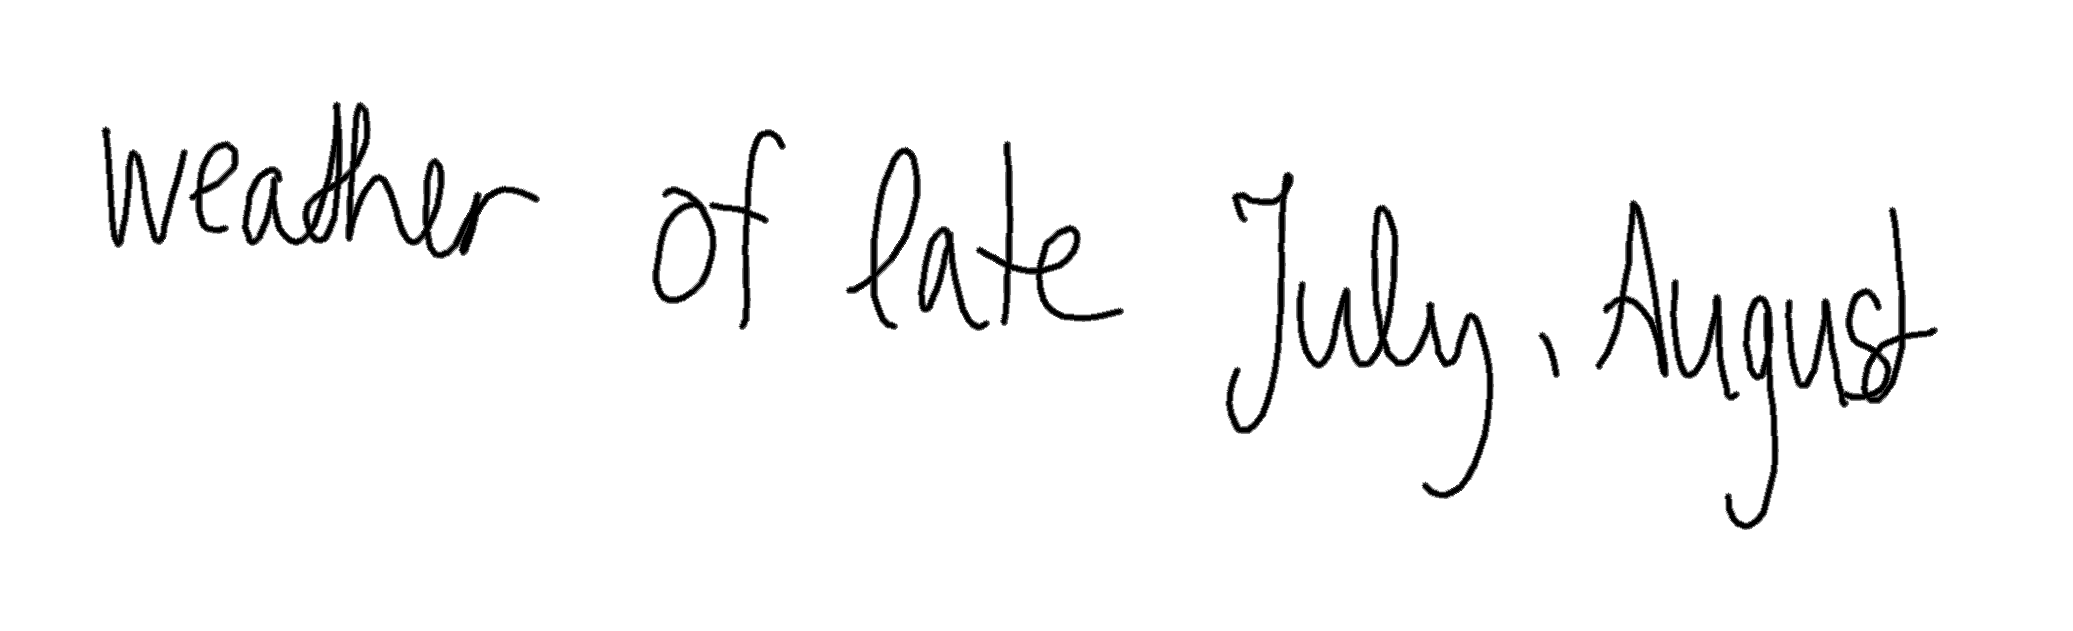 weather of late July, August